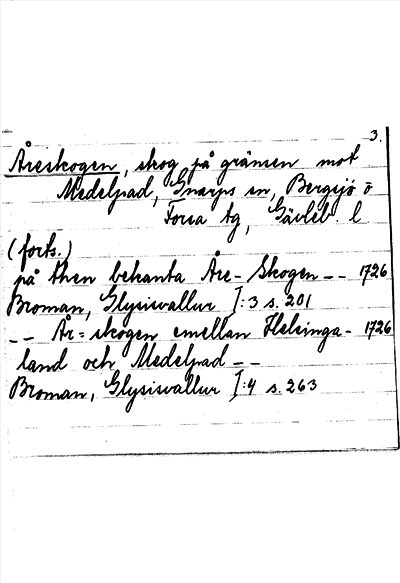 3.
Åreskogen, skog på gränsen mot
Medelpad, Gnarps sn, Bergsjö o
Forsa tg, Gävleb. l
(forts.)
på then bekanta Åre-Skogen -- 1726
Broman, Glysisvallur I:3 s. 201
-- År=skogen emellan Helsinga- 1726
land och Medelpad --
Broman, Glysisvallur I:4 s. 263